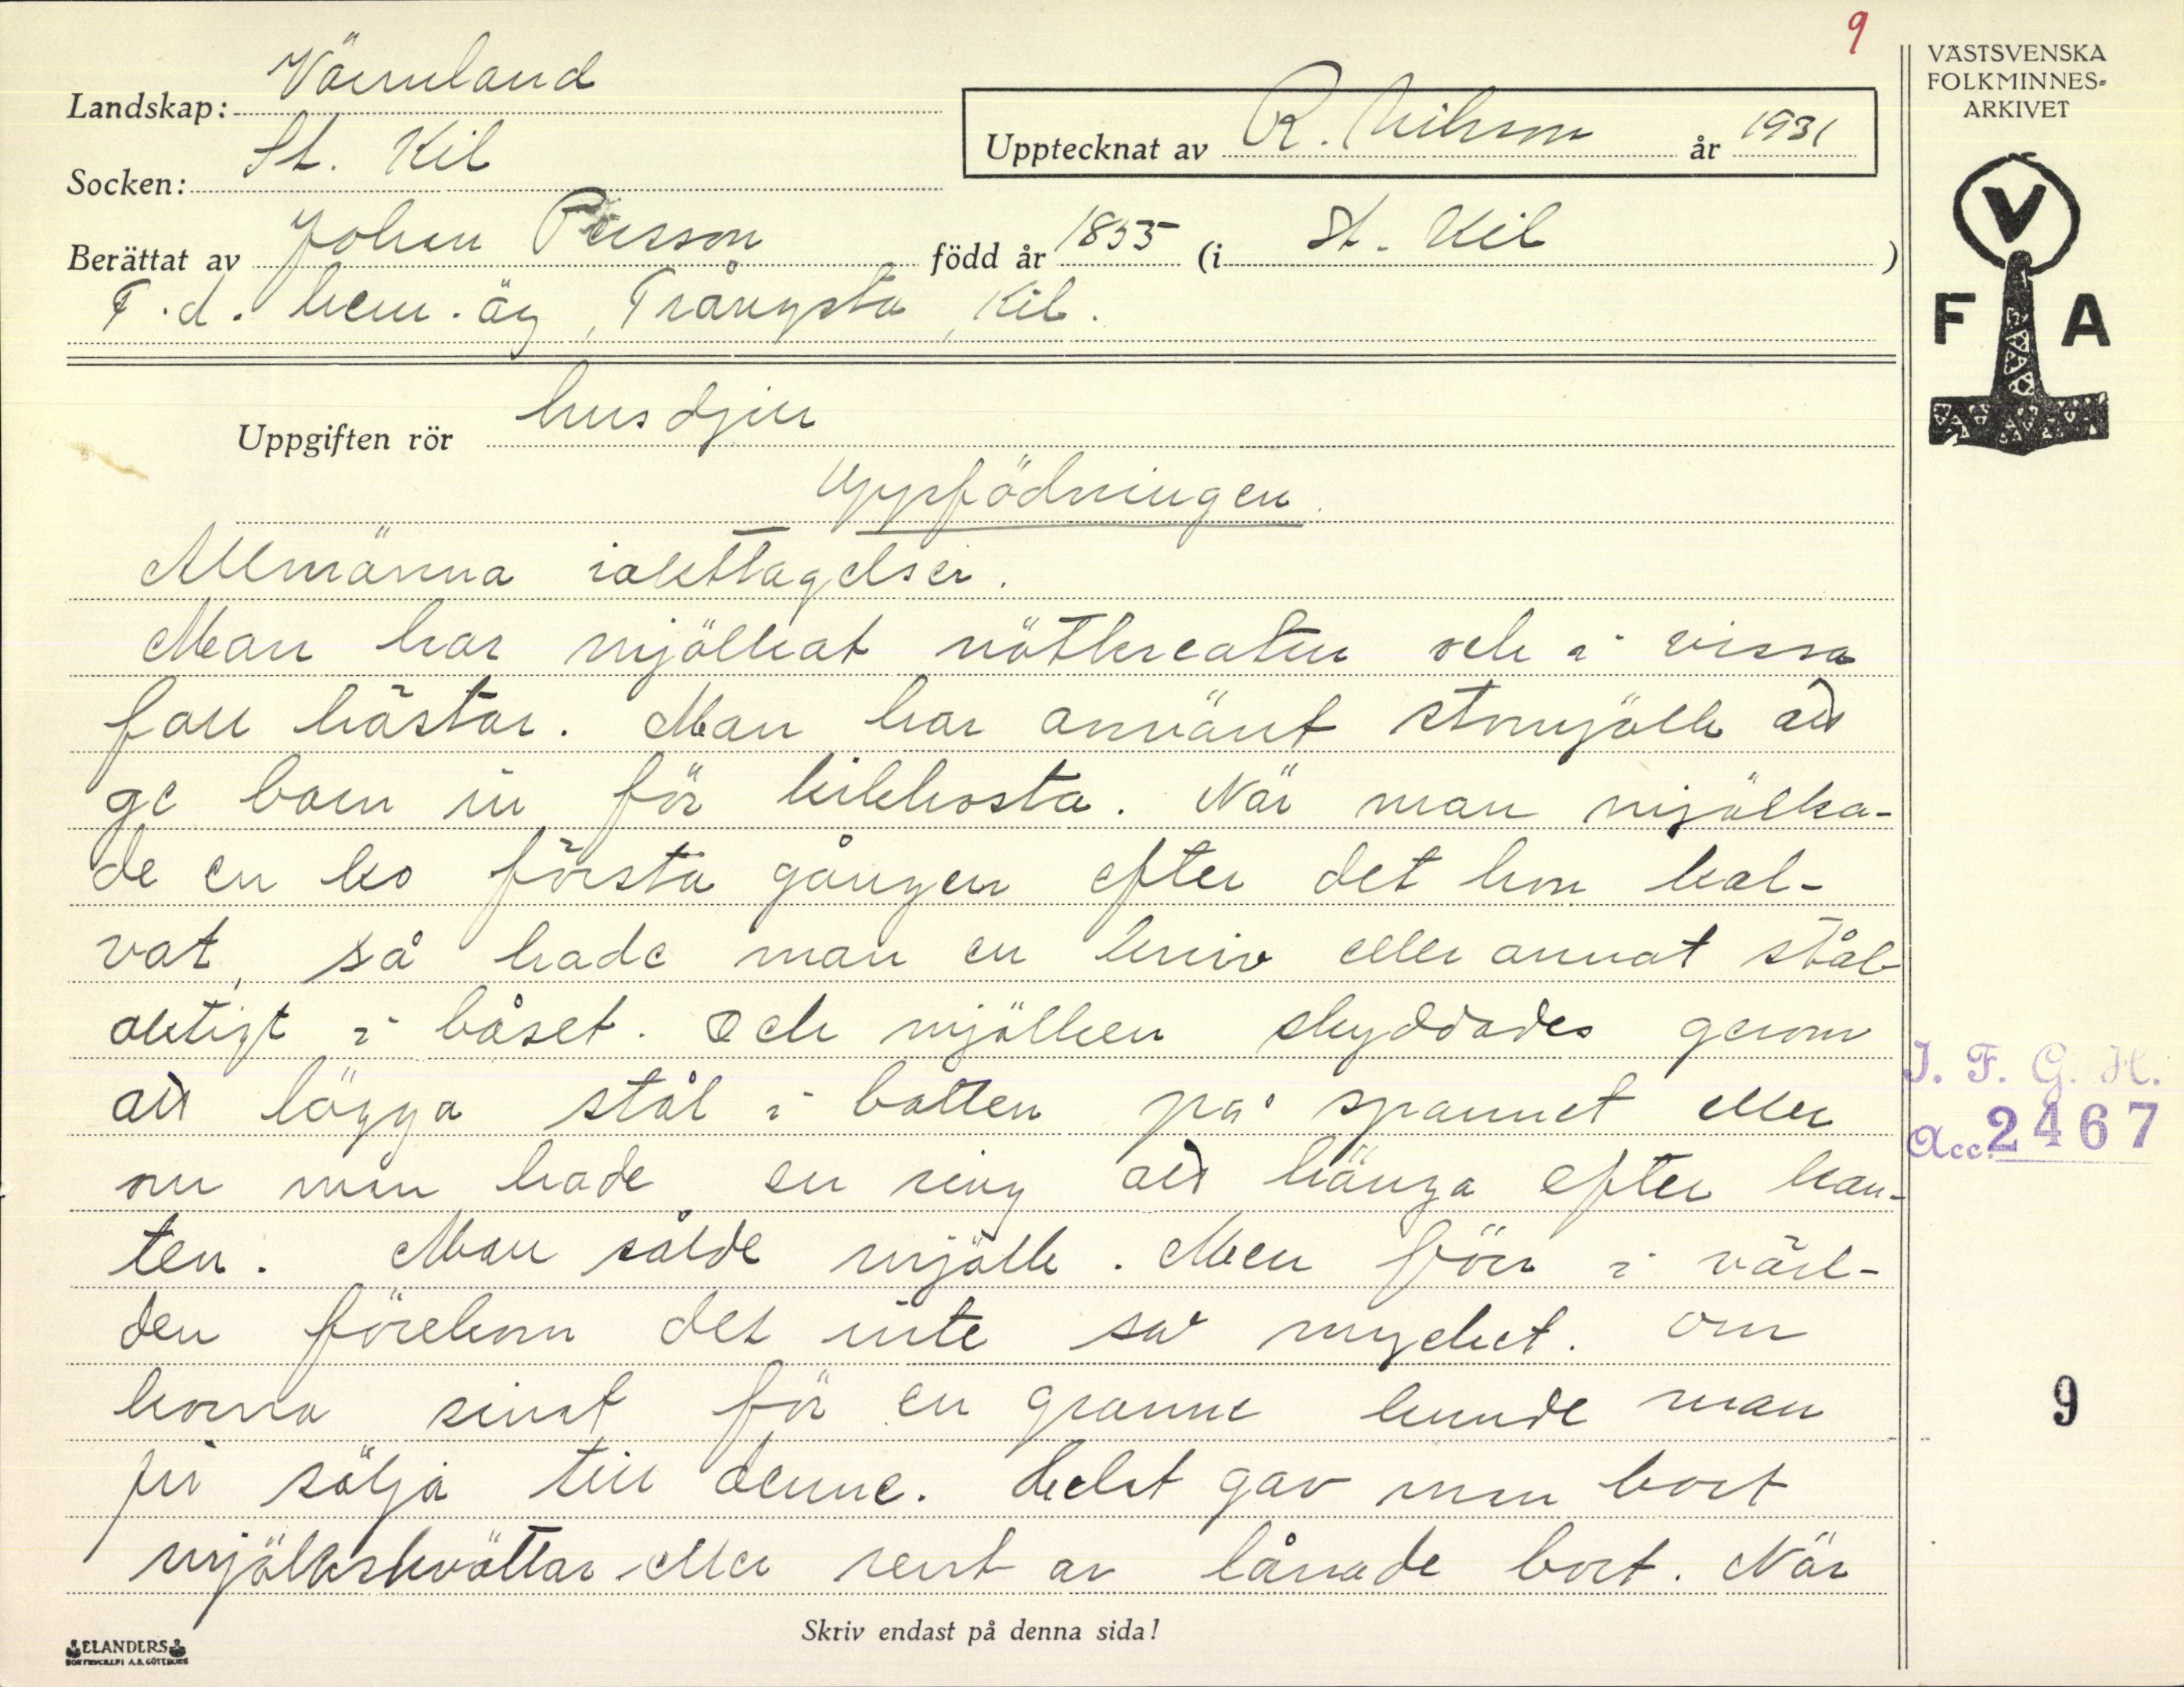 9
VÄSTSVENSKA
FOLKMINNES-
ARKIVET
V
F A
Landskap: Värmland
Upptecknat av R. Nilsson år 1931
Socken: St. Kil
Berättat av Johan Persson född år 1855 (i St. Kil )
F.d. hem.äg, Trångsta, Kil.
Uppgiften rör husdjur
Uppfödningen.
Allmänna iakttagelser.
Man har mjölkat nötkreatur och i vissa
fall hästar. Man har använt stomjölk att
ge barn in för kikhosta. När man mjölka-
de en ko första gången efter det hon kal-
vat, så hade man en kniv eller annat stål
aktigt i båset. Och mjölken skyddades genom
att lägga stål i botten på spannet eller
om man hade en ring att hänga efter kan-
ten. Man sålde mjölk. Men förr i värl-
den förekom det inte så mycket. Om
korna sinat för en granne kunde man
sälja till denne. Helst gav man bort
mjölkskvättar eller rent av lånade bort. När
J. F. G. H.
Acc. 2467
9
Skriv endast på denna sida!
ELANDERS
BOKTRYCKERI A.B. GÖTEBORG